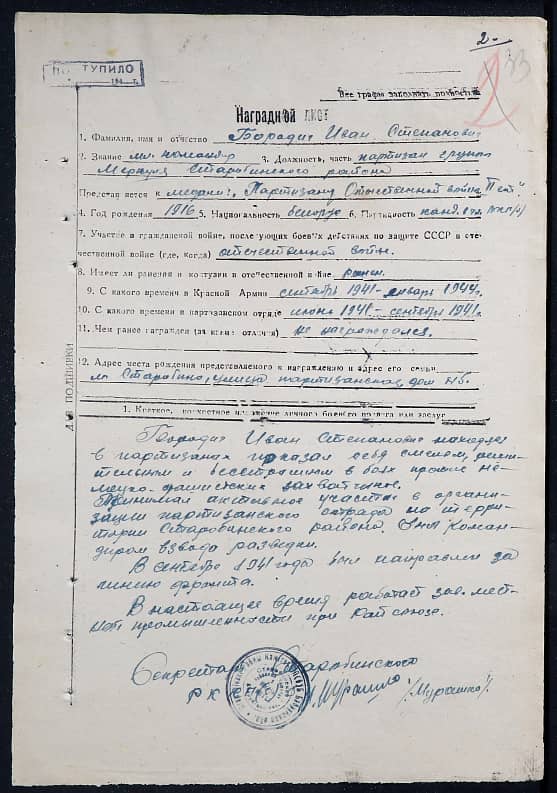 2-
33
ПОСТУПИЛО
2
Все графы заполнять полностью
Наградной лист
1. Фамилия, имя и отчество Бородич Иван Степанович
2. Звание мл. командир 3. Должность, часть партизан группы
Меркуля Старобинского района
Представляется к медали: "Партизану Отечественной войны II ст"
4. Год рождения 1916 5. Национальность белорус 6. Партийность канд. в чл. ВКП(б)
7. Участие в гражданской войне, последующих боевых действиях по защите СССР в оте-
чественной войне (где, когда) отечественной войны.
8. Имеет ли ранения и контузии в отечественной войне ранен.
9. С какого времени в Красной Армии сентябрь 1941 - январь 1944 г.
10. С какого времени в партизанском отряде июнь 1941 - сентябрь 1941.
11. Чем ранее награжден (за какие отличия) не награждался.
12. Адрес места рождения представляемого к награждению и адрес его семьи
м. Старобино, улица партизанская, дом №5.
ДЛЯ ПОДШИВКИ
1. Краткое, конкретное изложение личного боевого подвига или заслуг
Бородич Иван Степанович находясь
в партизанах показал себя смелым, реши-
тельным и бесстрашным в боях против не-
мецко-фашистских захватчиков.
Принимал активное участие в органи-
зации партизанского отряда на терри-
тории Старобинского района. Был коман-
диром взвода разведки.
В сентябре 1941 года был направлен за
линию фронта.
В настоящее время работает зав. мест-
ной промышленности при Райсоюзе.
Секретарь Старобинского
РК Мурашко /Мурашко/.